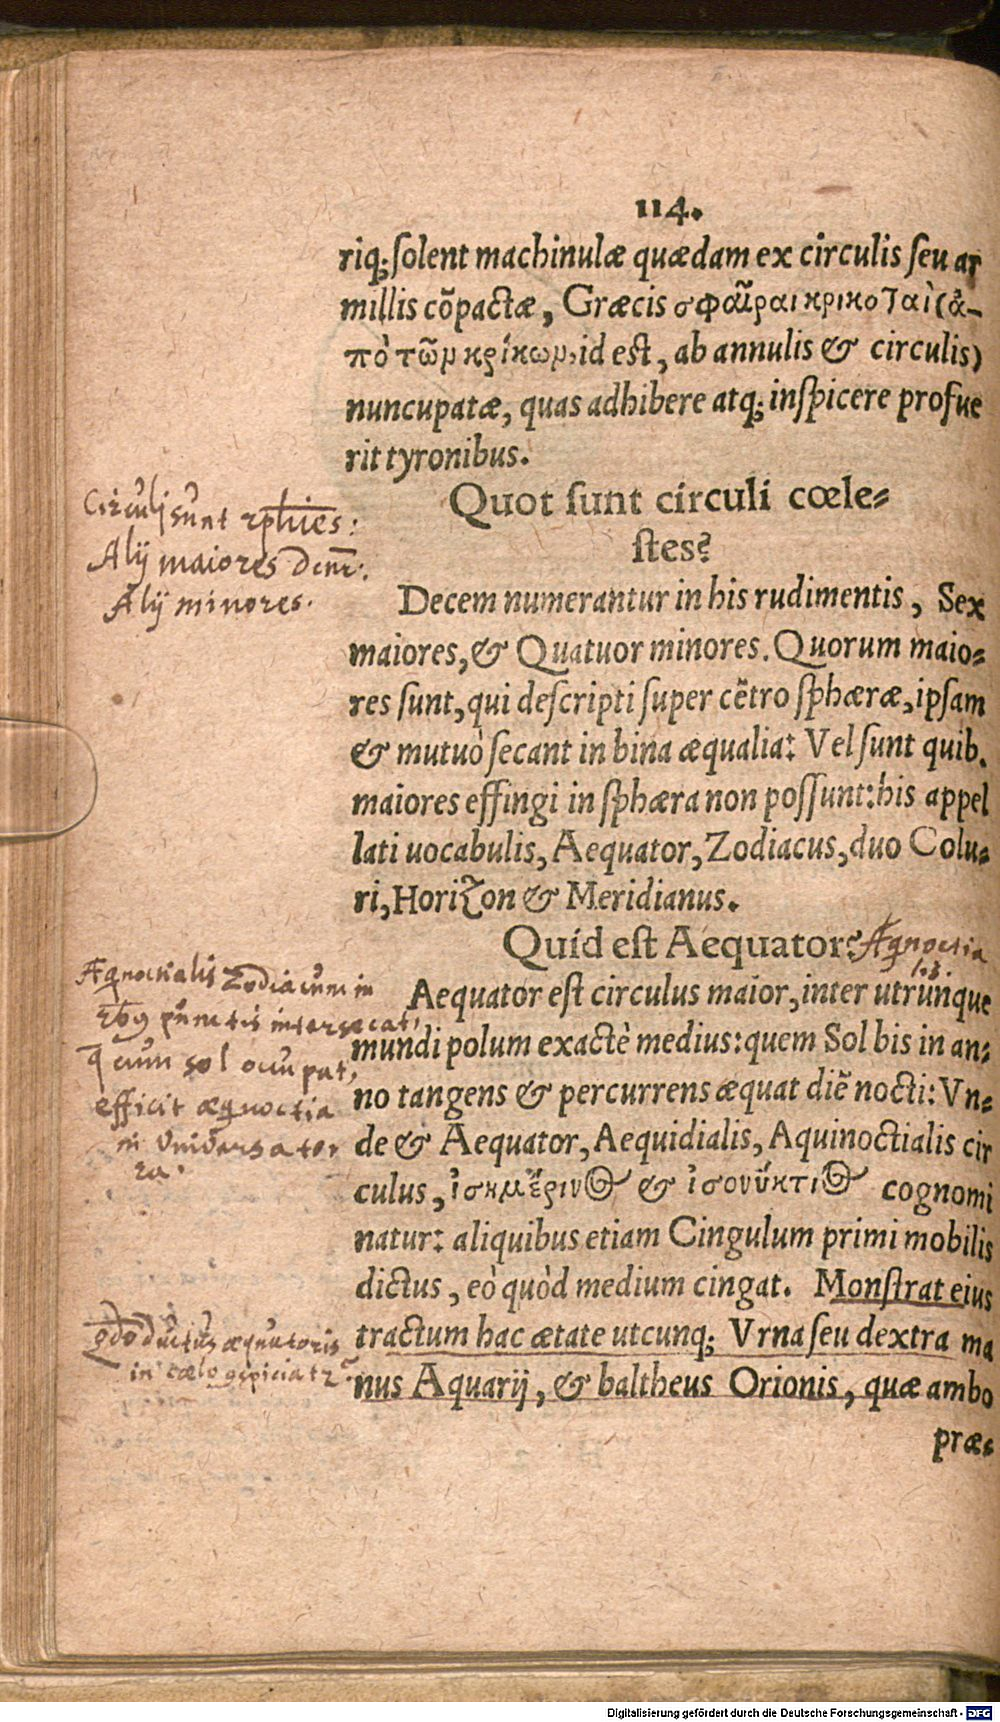 114.
riq; solent machinulæ quædam ex circulis seu ar
millis cõpactæ, Græcis σφαῖραι κρικοταὶ (ἀ-
πὸ τῶν κρίκων, id est, ab annulis & circulis)
nuncupatæ, quas adhibere atq; inspicere profue
rit tyronibus.
Quot sunt circuli cœle-
stes?
Circuli sunt
Alij maiores
Alij minores.
Decem numerantur in his rudimentis, Sex
maiores, & Quatuor minores. Quorum maio-
res sunt, qui descripti super cẽtro sphæræ, ipsam
& mutuò secant in bina æqualia: Vel sunt quib.
maiores effingi in sphæra non possunt: his appel
lati uocabulis, Aequator, Zodiacus, duo Colu-
ri, Horizon & Meridianus.
Quid est Aequator?
Aequator est circulus maior, inter utrunque
mundi polum exactè medius: quem Sol bis in an-
no tangens & percurrens æquat diẽ nocti: Vn-
de & Aequator, Aequidialis, Aquinoctialis cir
culus, ἰσημέρινος & ἰσονύκτιος cognomi
natur: aliquibus etiam Cingulum primi mobilis
dictus, eò quòd medium cingat. Monstrat eius
tractum hac ætate utcunq; Vrna seu dextra ma
nus Aquarij, & baltheus Orionis, quæ ambo
præ-
Æqnoctialis Zodiacum in
punctis intersecat,
q̃ cum sol occupat,
efficit æqnoctia
in universa ter
ra.
ductus æquatoris
in cœlo
Digitalisierung gefördert durch die Deutsche Forschungsgemeinschaft - DFG